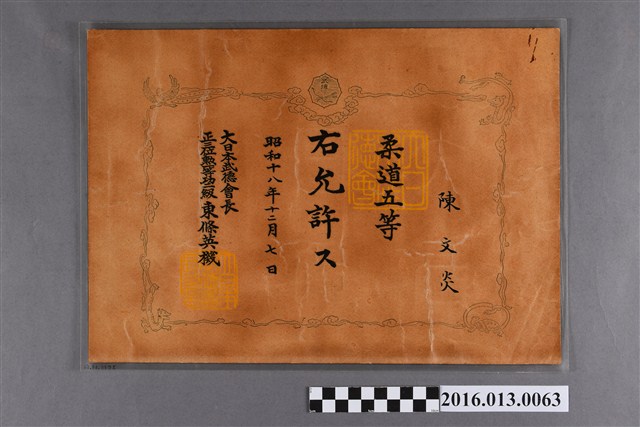 陳文炎
柔道五等
右允許ス
昭和十八年十二月七日
大日本武德會長
正三位勲一等功二級 東條英機
2016.013.0063